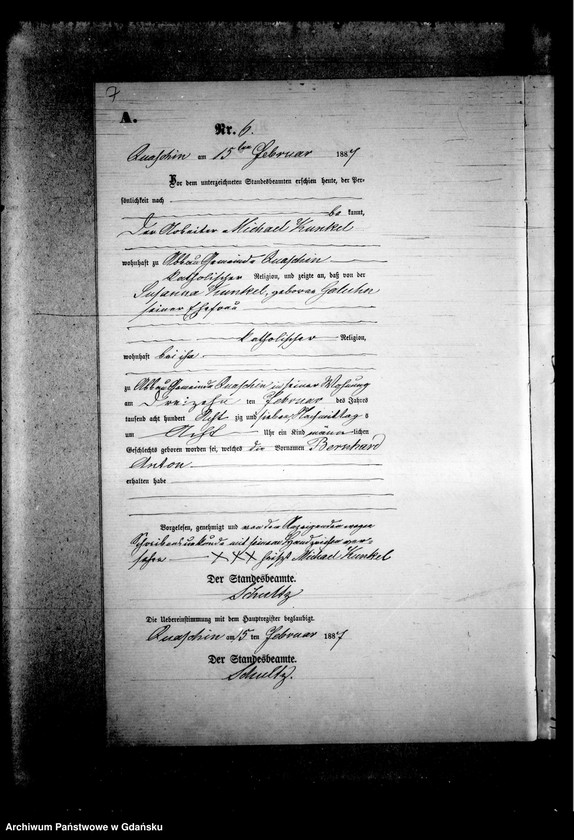 7
A.
Nr. 6.
Quaschin am 15ten Februar 1887
Vor dem unterzeichneten Standesbeamten erschien heute, der Per-
sönlichkeit nach
be kannt,
Der Arbeiter Michael Kunkel
wohnhaft zu Abbau Gemeinde Quaschin
katholischer Religion, und zeigte an, daß von der
Susanna Kunkel, geborne
seiner Ehefrau
katholischer Religion,
wohnhaft bei ihm
zu Abbau Gemeinde Quaschin in seiner Wohnung
am Dreizehn ten Februar des Jahres
tausend acht hundert Acht zig und sieben Nachmittag s
um Acht Uhr ein Kind männ lichen
Geschlechts geboren worden sei, welches die Vornamen Bernhard
Anton
erhalten habe
Vorgelesen, genehmigt und von dem Anzeigenden wegen
Schreibensunkunde mit seinem Handzeichen ver-
sehen XXX Michael Kunkel
Der Standesbeamte.
Schultz
Die Uebereinstimmung mit dem Hauptregister beglaubigt.
Quaschin am 15 ten Februar 1887
Der Standesbeamte.
Schultz.
Archiwum Państwowe w Gdańsku